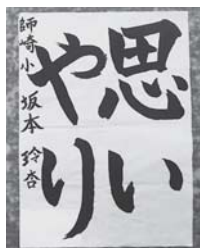 思い
やり
師崎小 坂本 玲杏